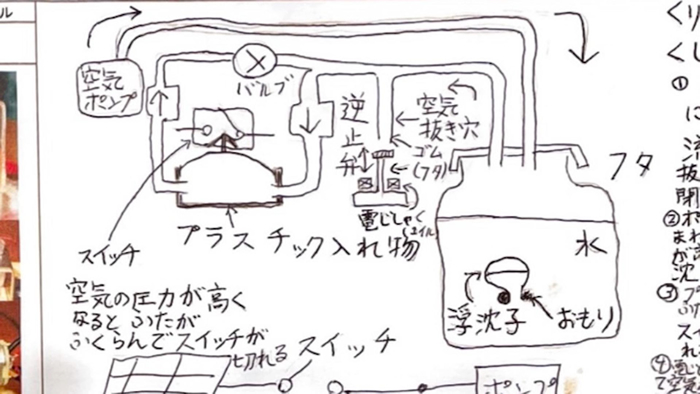 ル
空気
ポンプ
バルブ
逆止弁
空気
抜き穴
ゴム
(フタ)
電じしゃく
コイル
フタ
水
浮沈子
おもり
スイッチ
プラスチック入れ物
空気の圧力が高く
なると ふたが
ふくらんでスイッチが
切れる
スイッチ
ポンプ
くり
くし
①
に
流
抜
閉
②ポ
まわ
が高
沈
③プ
ふ
スイ
れ
④電じ
て空気